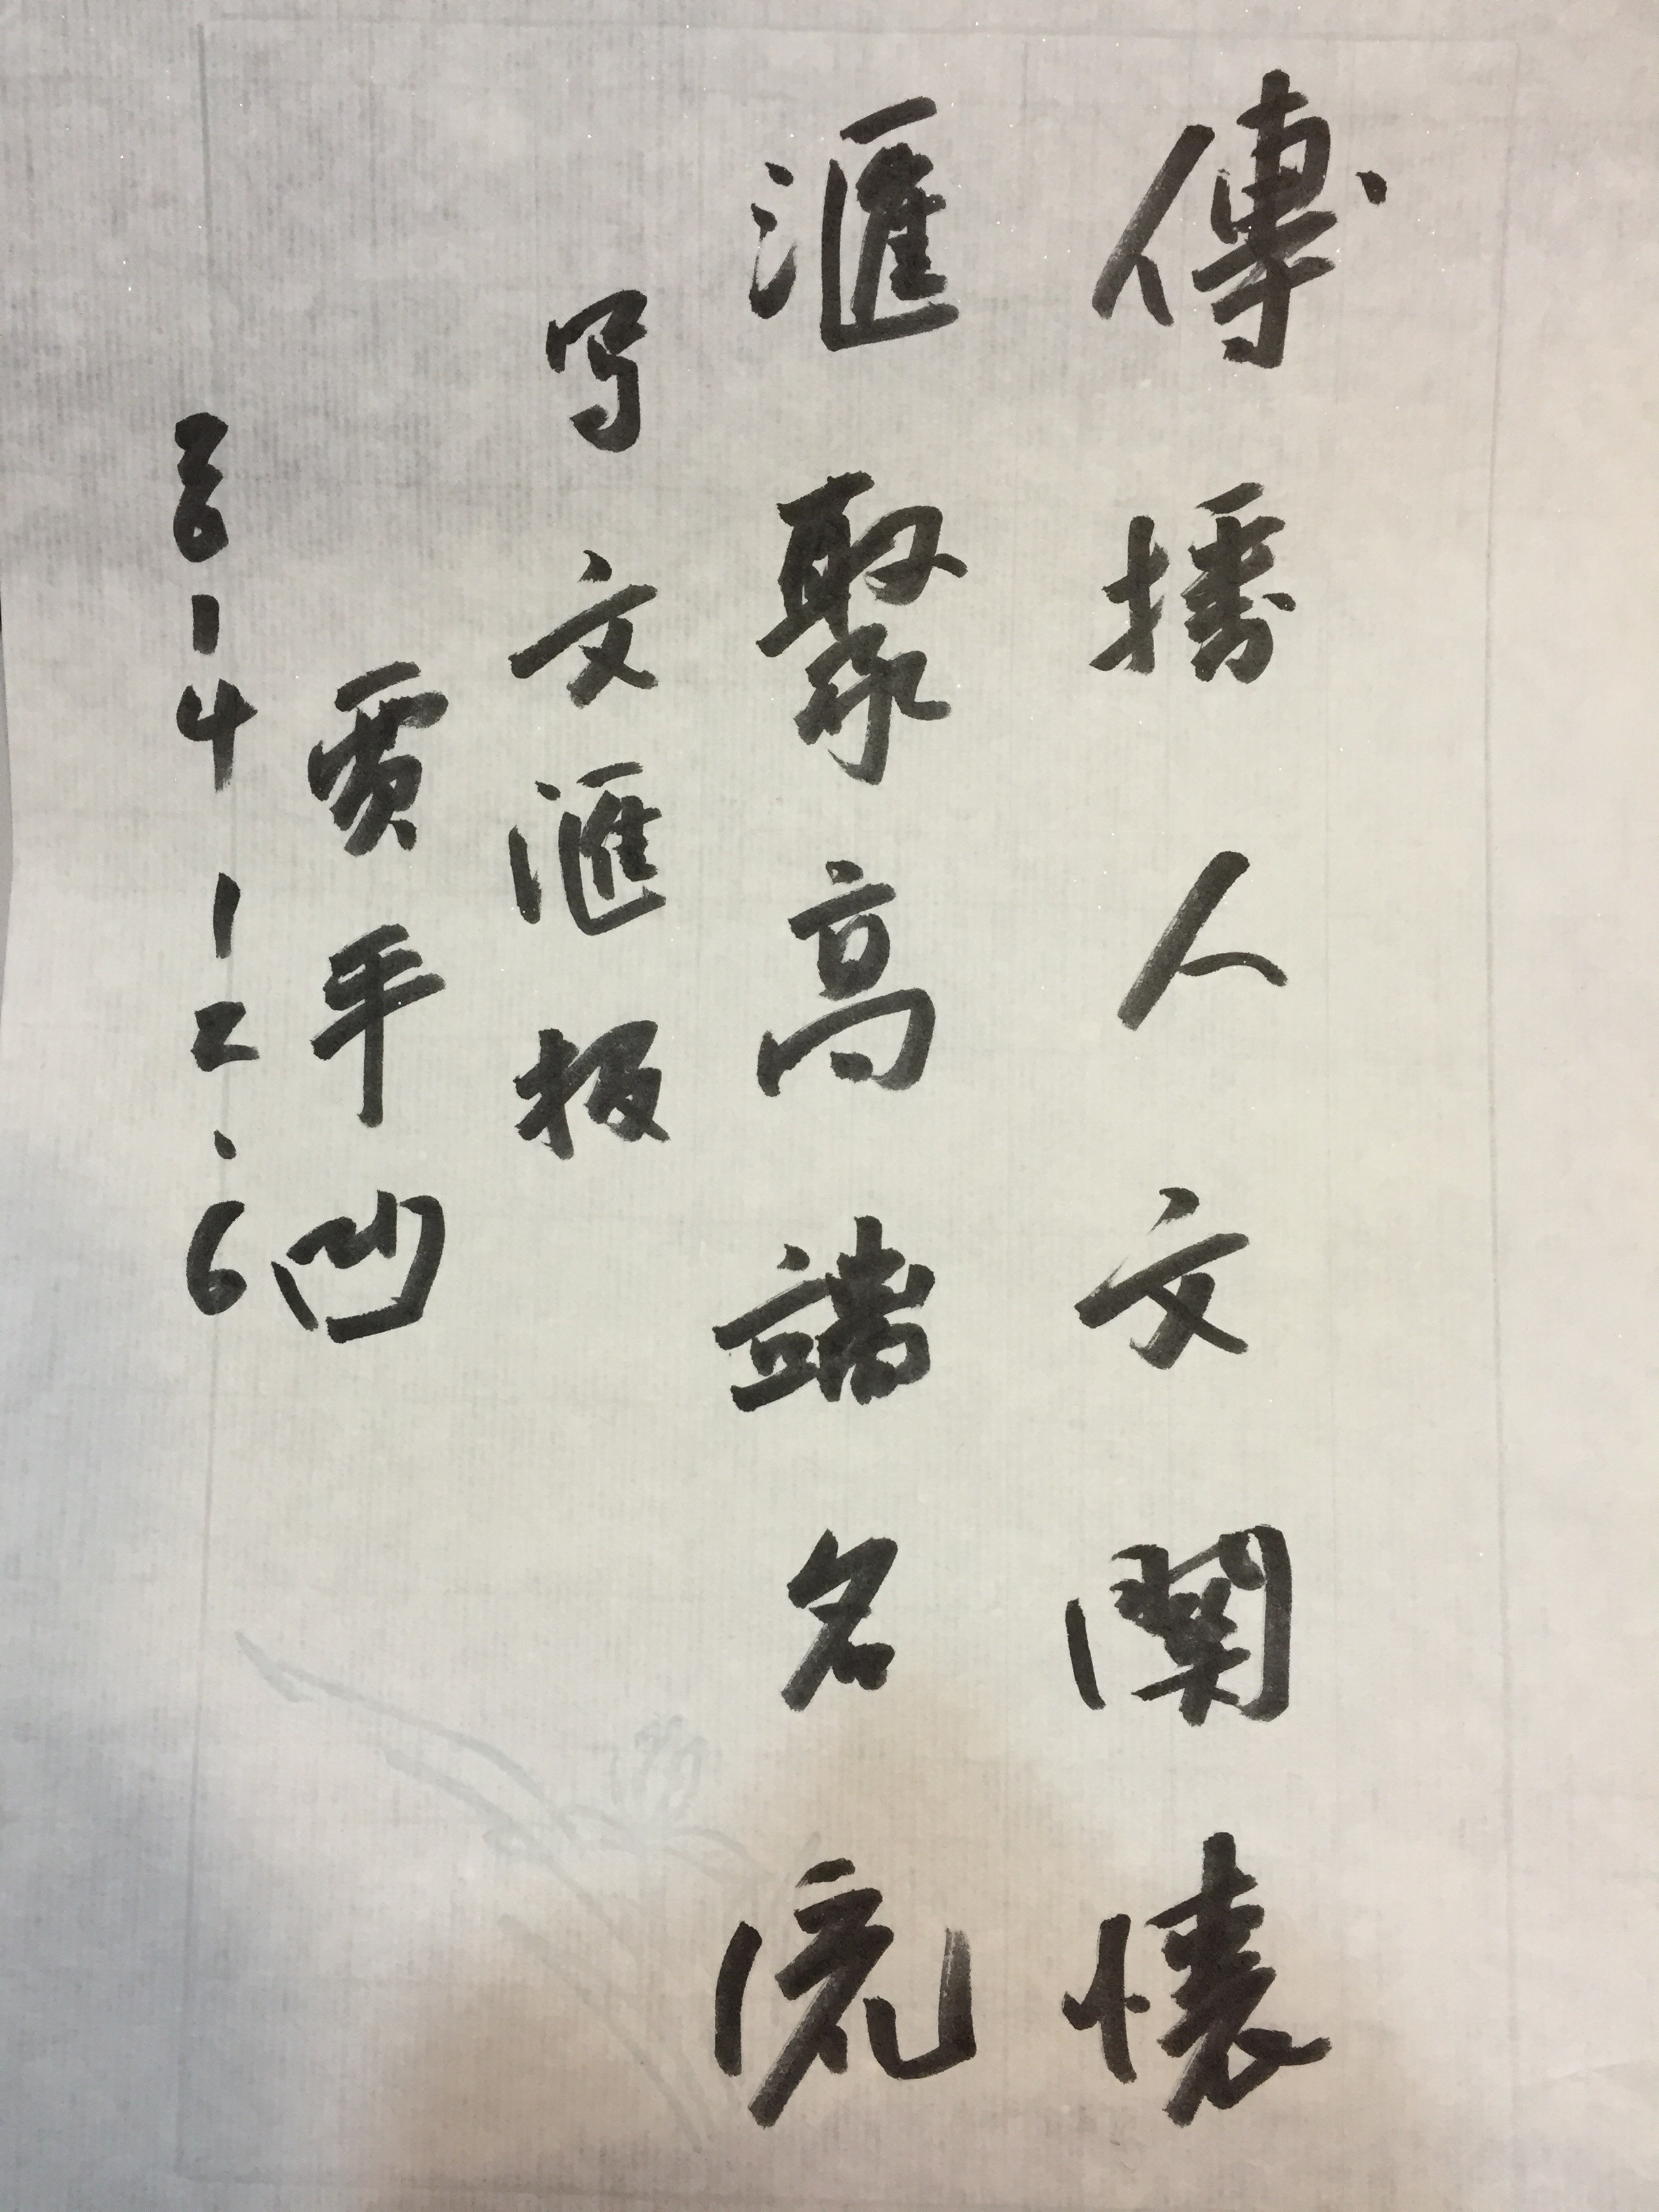 傳播人文關懷
滙聚高端名流
写文滙报
贾平凹
2014 12.6